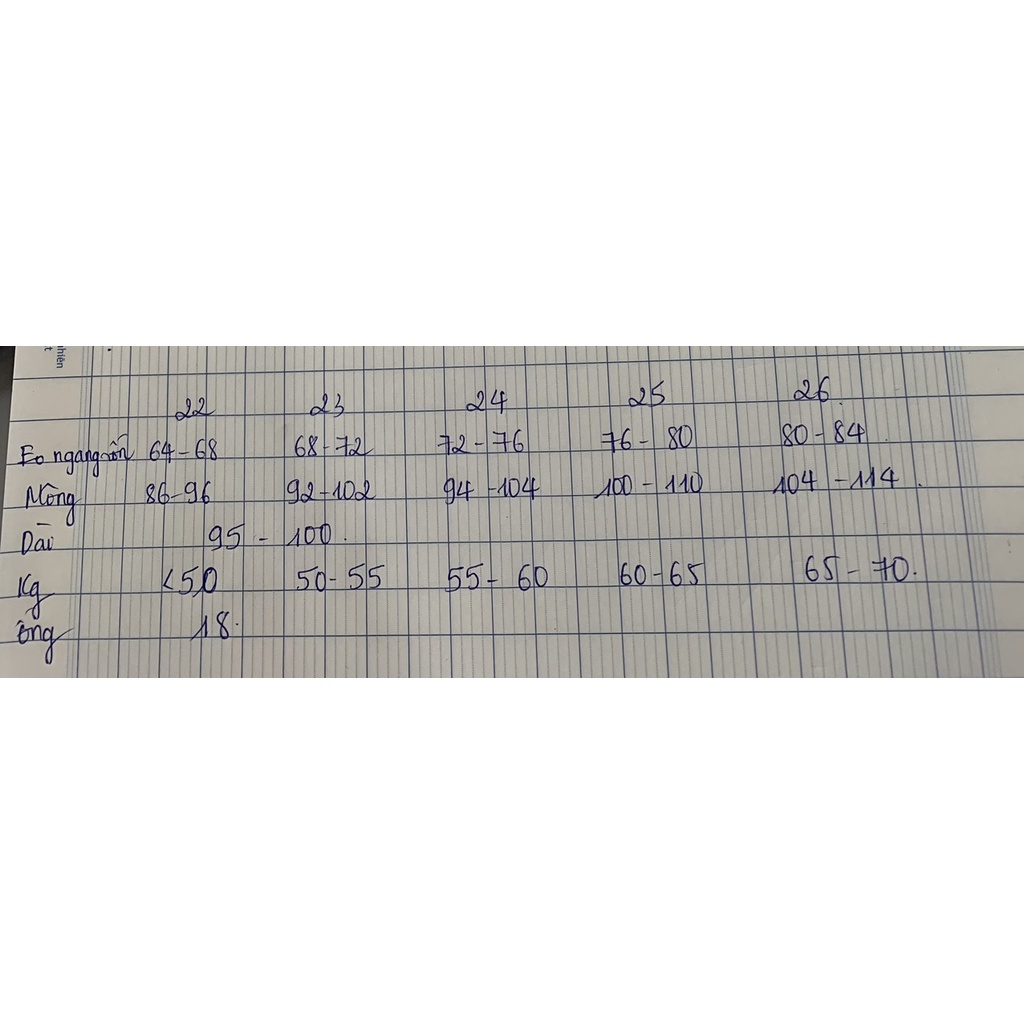 hiên
t
22 23 24 25 26
Eo ngang rốn 64-68 68-72 72-76 76-80 80-84
Mông 86-96 92-102 94-104 100-110 104-114.
Dài 95-100.
Kg <50 50-55 55-60 60-65 65-70.
ống 18.